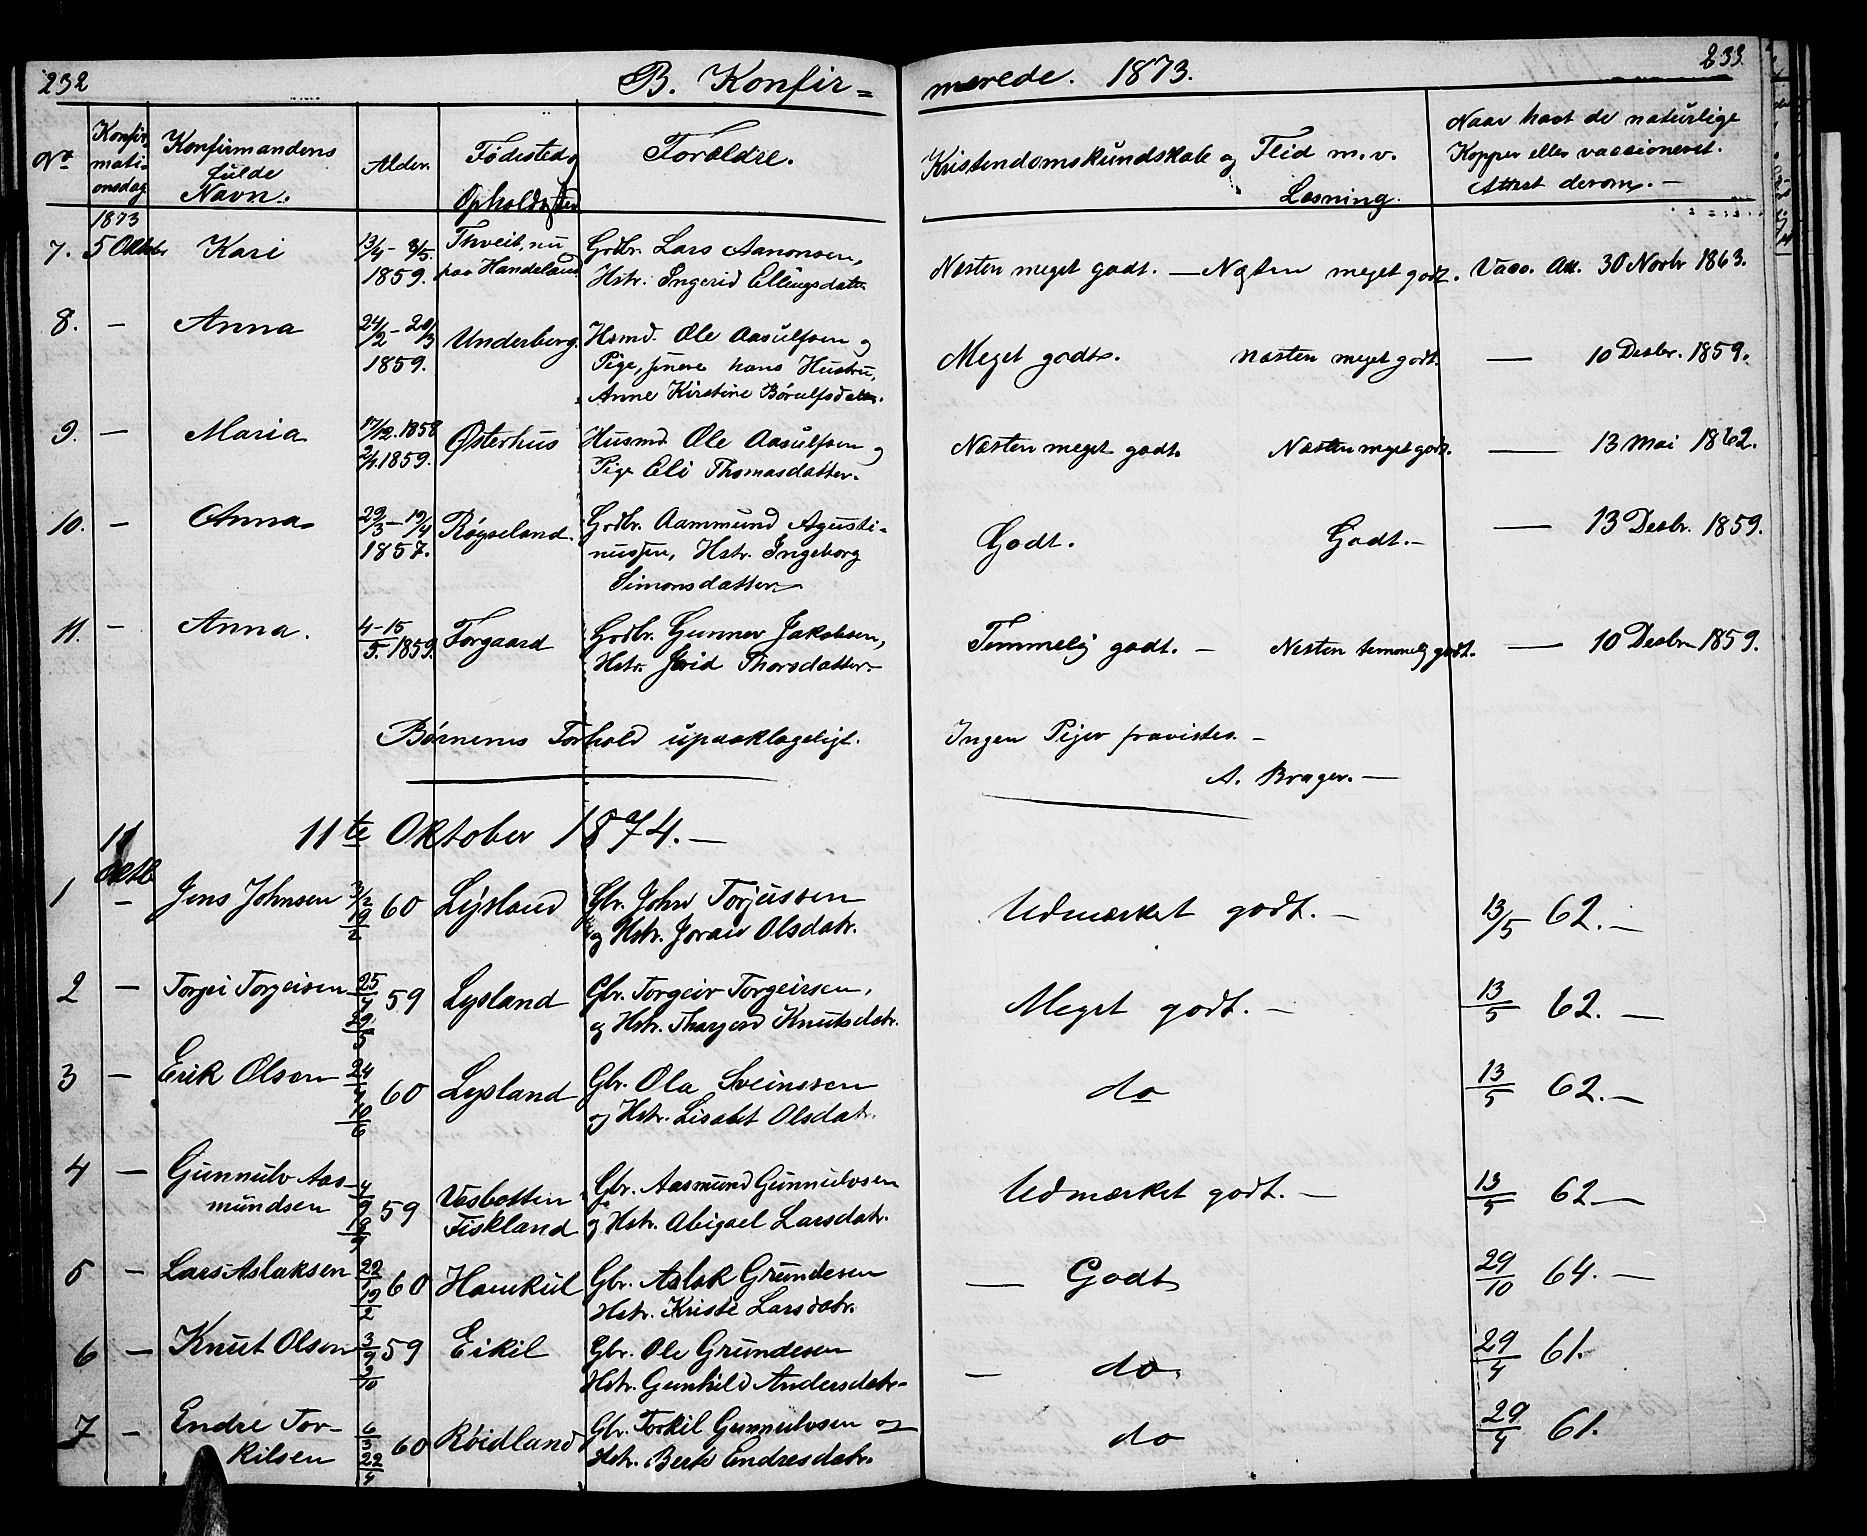 232
B. Konfir=
merede. 1873.
233.
No
Konfir
mati-
onsdag
Konfirmandens
fulde
Navn.
Alder.
Fødested og
Opholdssted
Forældre.
Kristendomskundskab og Flid m.v.
Læsning.
Naar havt de naturlige
Kopper eller vaccioneret.
Attest derom. —
1873
7. 5 Oktbr Kari 13/4 - 8/5. 1859. Thveit, nu paa Handeland
Gdbr. Lars Aanonsen,
Hstr. Ingerid Ellingsdatter
Næsten meget godt. — Næsten meget godt. Vacc. Att. 30 Novbr 1863.
8. — Anna 24/2 - 20/3 1859. Underberg.
Hsmd. Ole Aasulfsen og
Pige, senere hans Hustru,
Anne Kirstine Børulfsdatter.
Meget godt. næsten meget godt. — 10 Desbr. 1859.
9. — Maria 17/12. 1858 2/1. 1859. Østerhus
Husmd. Ole Aasulfsen og
Pige Eli Thomasdatter.
Næsten meget godt. Næsten meget godt. — 13 Mai 1862.
10. — Anna 29/3 - 19/4 1857. Røgseland.
Gdbr. Aammund Agusti-
nussen, Hstr. Ingeborg
Simonsdatter
Godt. Godt. — — 13 Desbr. 1859.
11. — Anna. 4-15/5. 1859. Forgaard
Gdbr. Gunner Jakobsen,
Hstr. Thorsdatter. —
Temmelig godt. — Nesten temmelig godt. — 10 Desbr 1859.
Børnenes Forhold upaaklageligt.
Ingen Piger fravistes. —
A. Brager. —
11te Oktober 1874. —
11
Oktb
1 — Jens Johnsen 3/2 19/2 60 Lysland
Gbr. John Torjussen
og Hstr. Joran Olsdatr.
Udmærket godt. — 13/5 62. —
2 — Torgei Torgeisen 25/4 29/5 59 Lysland
Gbr. Torgeir Torgeirsen,
og Hstr. Thargerd Knutsdatr.
Meget godt. — 13/5 62. —
3 — Erik Olsen 24/4 10/6 60 Lysland
Gbr. Ola Sveinssen
og Hstr. Lisabet Olsdatr.
do 13/5 62. —
4 — Gunnulv Aas-
mundsen 59 Vasbotten
Fiskland
Gbr. Aasmund Gunnulvsen
og Hstr. Abigael Larsdatr.
Udmærket godt. — 13/5 62 —
5 — Lars Aslaksen 60 Haukul
Gbr. Aslak Grundesen
Hstr. Kristi Larsdatr.
— Godt 29/10 64. —
6 — Knut Olsen 3/9 9/10 59 Eikil
Gbr. Ole Grundesen
Hstr. Gunhild Andersdatr —
— do. 29/4 61.
7 — Endre Tor-
kilsen 6/3 22/4 60 Røidland
Gbr. Torkil Gunnulvsen og
Hstr. Berte Endresdatr.
do 29/4 61.